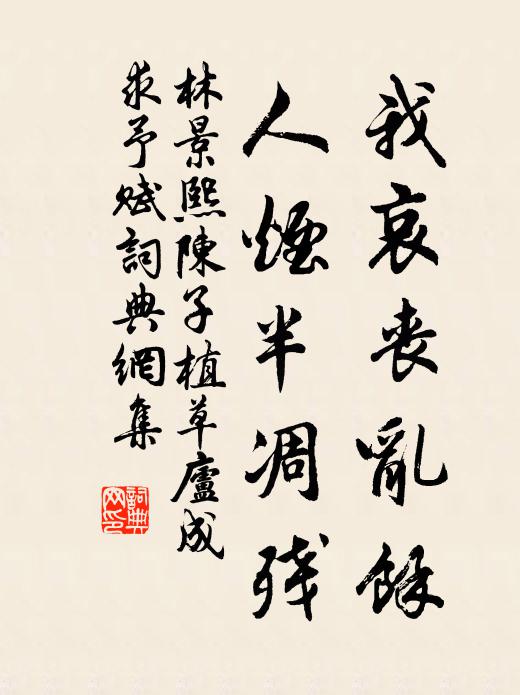 我哀喪亂餘
人煙半凋殘
林景熙陳子植草廬成
求予賦詞典網集
詞典網印